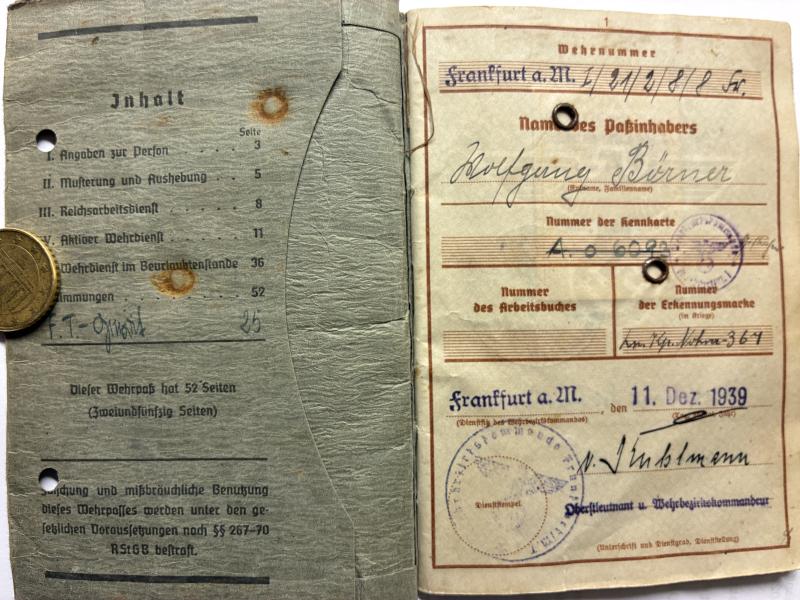 Inhalt
Seite
I. Angaben zur Person . . . . 3
II. Musterung und Aushebung . . 5
III. Reichsarbeitsdienst . . . . . 8
V. Aktiver Wehrdienst . . . . . 11
Wehrdienst im Beurlaubtenstande 36
immungen . . . . . 52
F. T. 25
Dieser Wehrpaß hat 52 Seiten
(Zweiundfünfzig Seiten)
Fälschung und mißbräuchliche Benutzung
dieses Wehrpasses werden unter den ge-
setzlichen Voraussetzungen nach §§ 267-70
RStGB bestraft.
1
Wehrnummer
Frankfurt a. M. 21/2/8/8 Fr.
Name des Paßinhabers
Wolfgang Börner
(Vorname, Familienname)
Nummer der Kennkarte
A. 0 6092
Nummer
des Arbeitsbuches
Nummer
der Erkennungsmarke
(im Kriege)
Kp. Nohra - 364
Frankfurt a. M., den 11. Dez. 1939
(Dienstsitz des Wehrbezirkskommandos)
Dienststempel
Oberstleutnant u. Wehrbezirkskommandeur
(Unterschrift und Dienstgrad, Dienststellung)